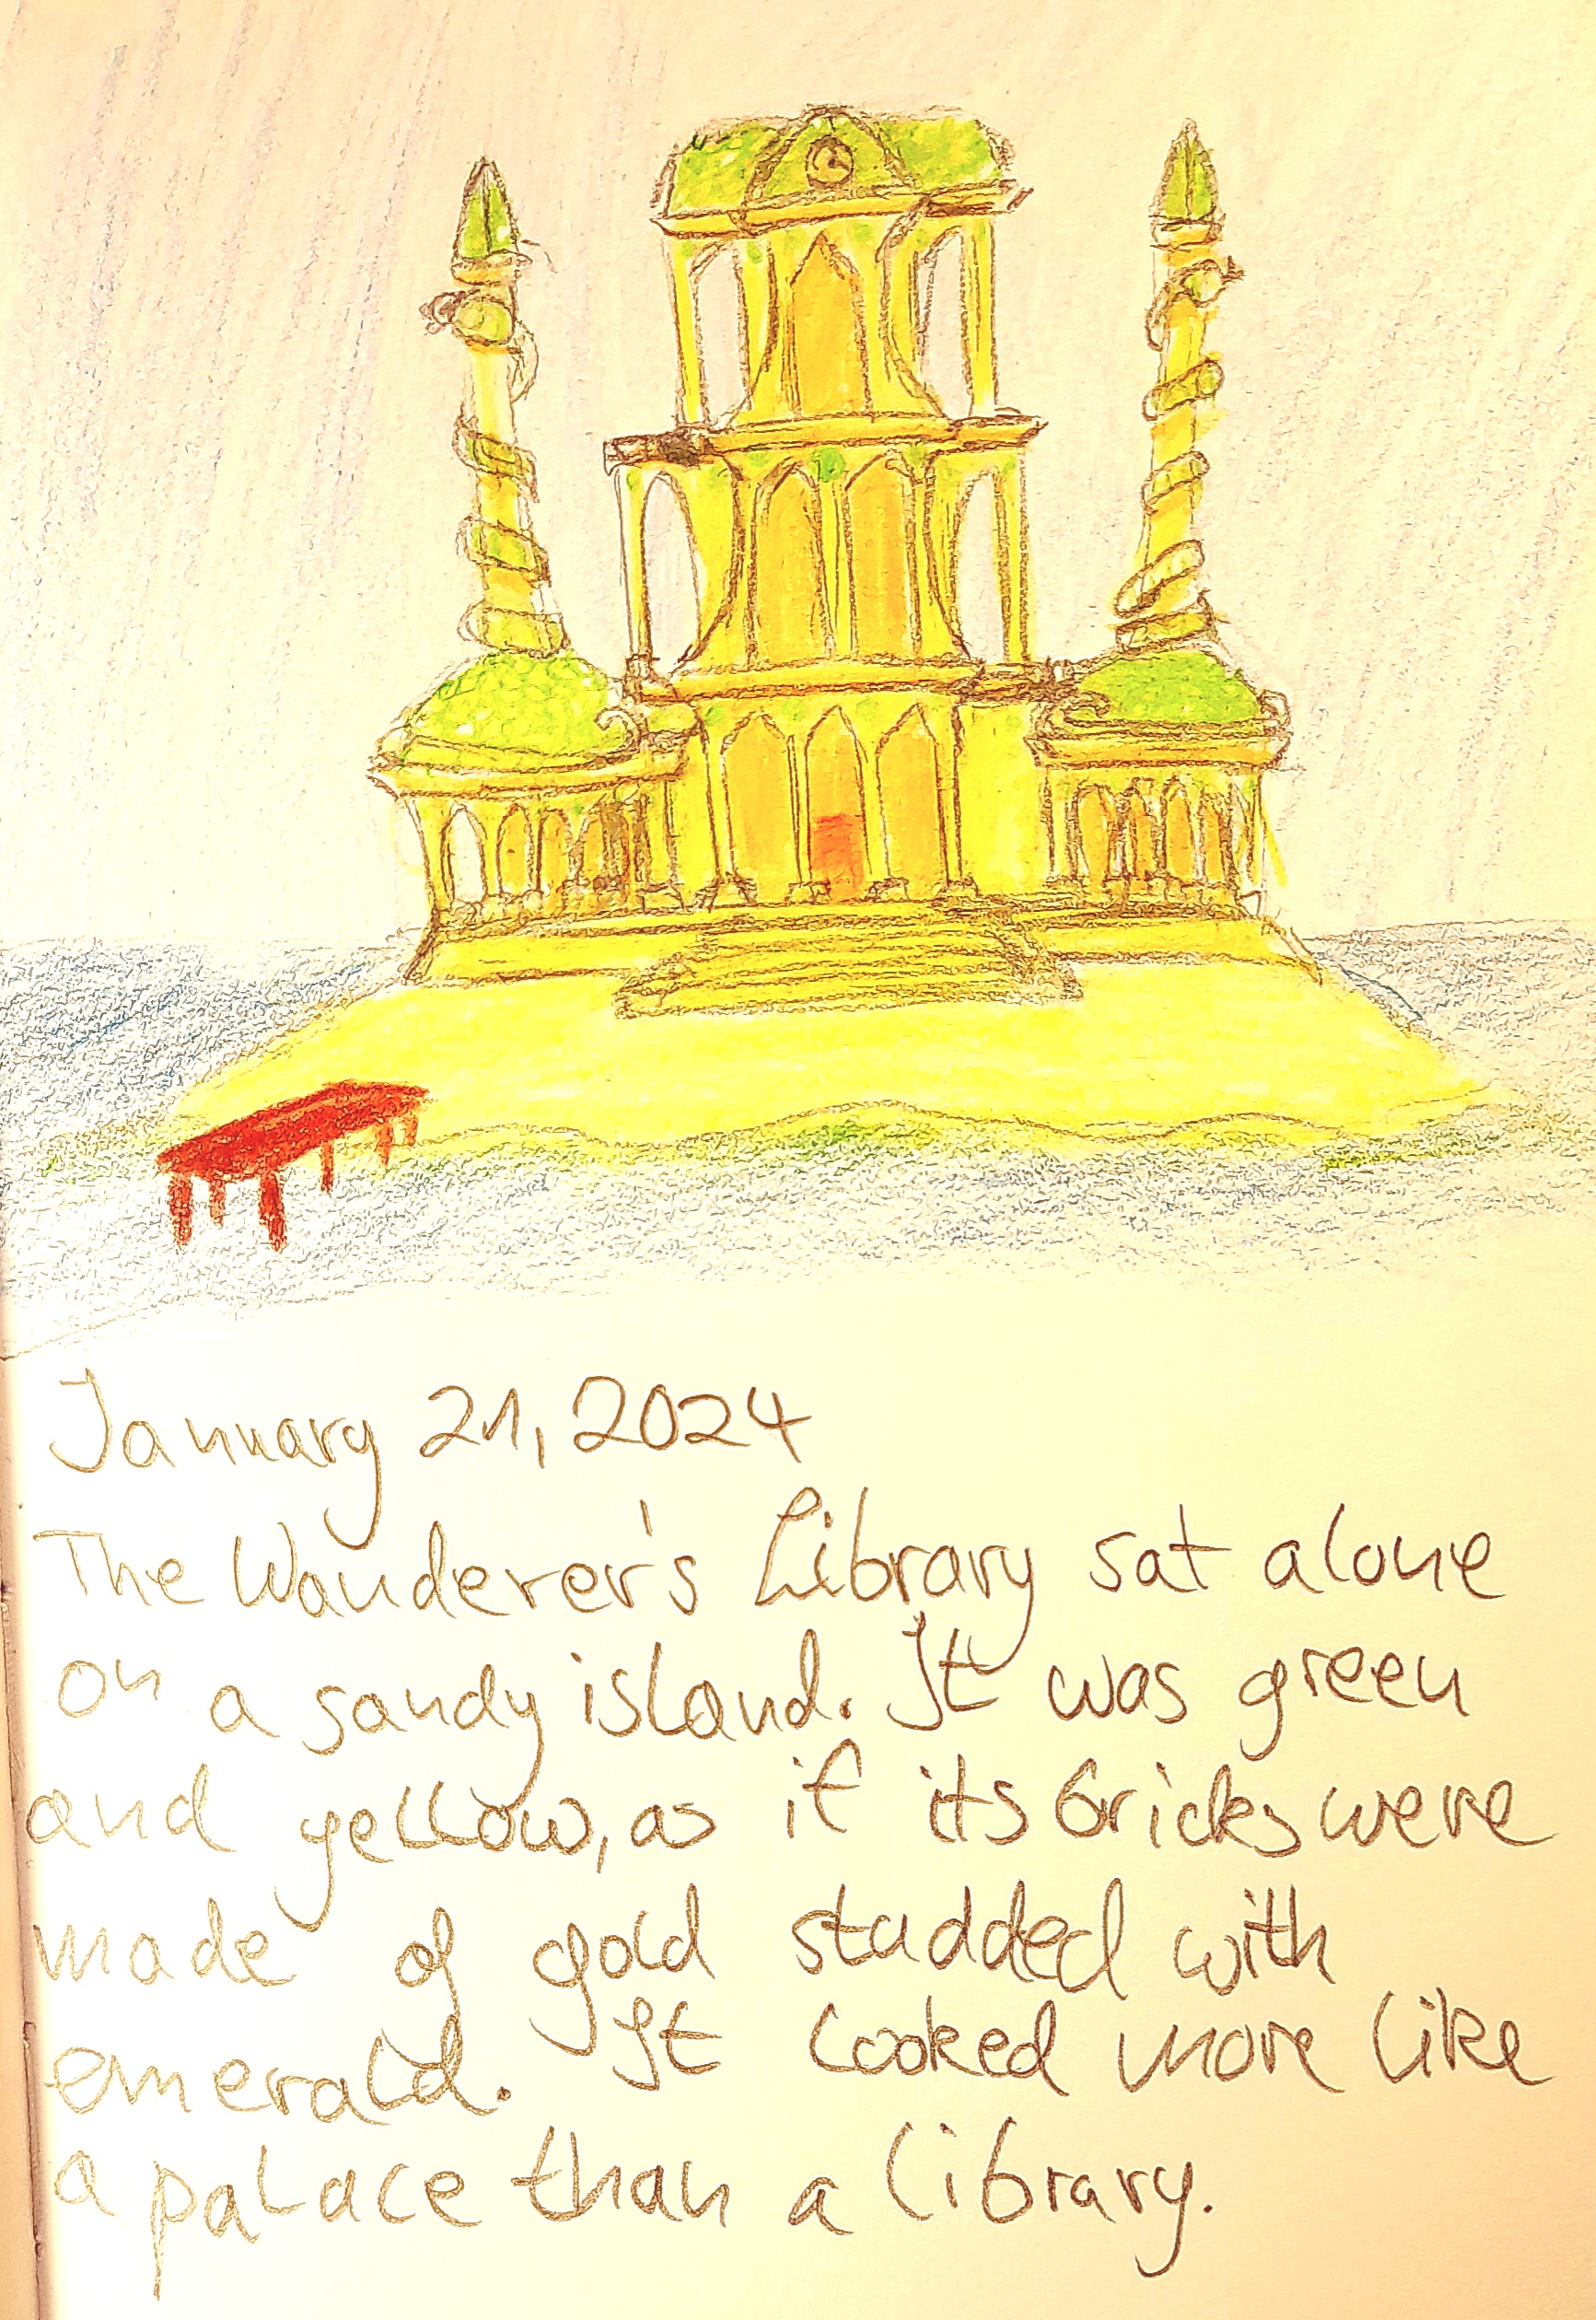 January 21, 2024
The Wanderer's Library sat alone
on a sandy island. It was green
and yellow, as if its bricks were
made of gold studded with
emerald. It looked more like
a palace than a library.